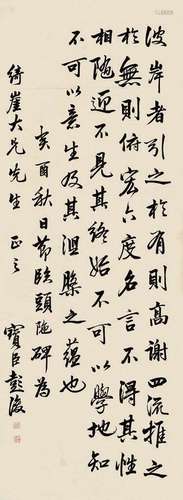 彼岸者引之於有則高謝四流推之
於無則俯宏六度名言不得其性
相隨迎不見其終始不可以學地知
不可以意生及其涅槃之蘊也
癸酉秋日節臨頭陁碑為
綺崖大兄先生 正之
寶臣彭浚